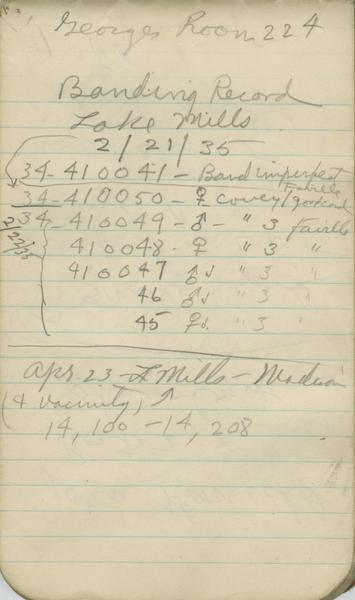 Georges Room 224
Banding Record
Lake Mills
2/21/35
34-410041 - Band imperfect
34-410050 - ♀ covey 1 good cond
Fairlle
34-410049 - ♂ - " 3 Fairlle
2/22/35
410048 - ♀ " 3 "
410047 ♂ " 3 "
46 ♂ " 3 "
45 ♀ " 3 "
Apr. 23 - L Mills - Madison
(& vacinity)
14,100 - 14,208